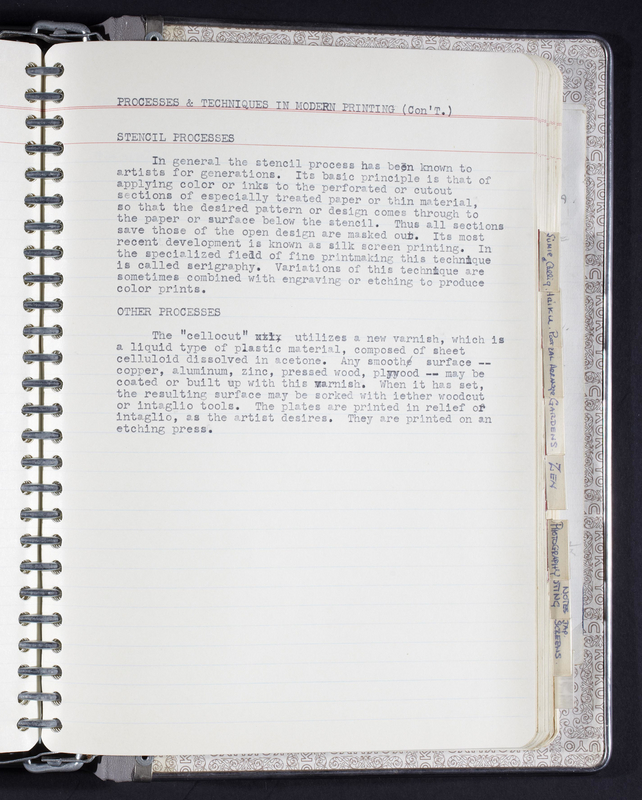 PROCESSES & TECHNIQUES IN MODERN PRINTING (Con'T.)
STENCIL PROCESSES
In general the stencil process has been known to
artists for generations. Its basic principle is that of
applying color or inks to the perforated or cutout
sections of especially treated paper or thin material,
so that the desired pattern or design comes through to
the paper or surface below the stencil. Thus all sections
save those of the open design are masked out. Its most
recent development is known as silk screen printing. In
the specialized field of fine printmaking this technique
is called serigraphy. Variations of this technique are
sometimes combined with engraving or etching to produce
color prints.
OTHER PROCESSES
The "cellocut" utilizes a new varnish, which is
a liquid type of plastic material, composed of sheet
celluloid dissolved in acetone. Any smooth surface --
copper, aluminum, zinc, pressed wood, plywood -- may be
coated or built up with this varnish. When it has set,
the resulting surface may be sorked with iether woodcut
or intaglio tools. The plates are printed in relief or
intaglio, as the artist desires. They are printed on an
etching press.
SUMIE
HAIKU
GARDENS
ZEN
PHOTOGRAPHY
NOTES JAP
SCREENS
KOKUYO